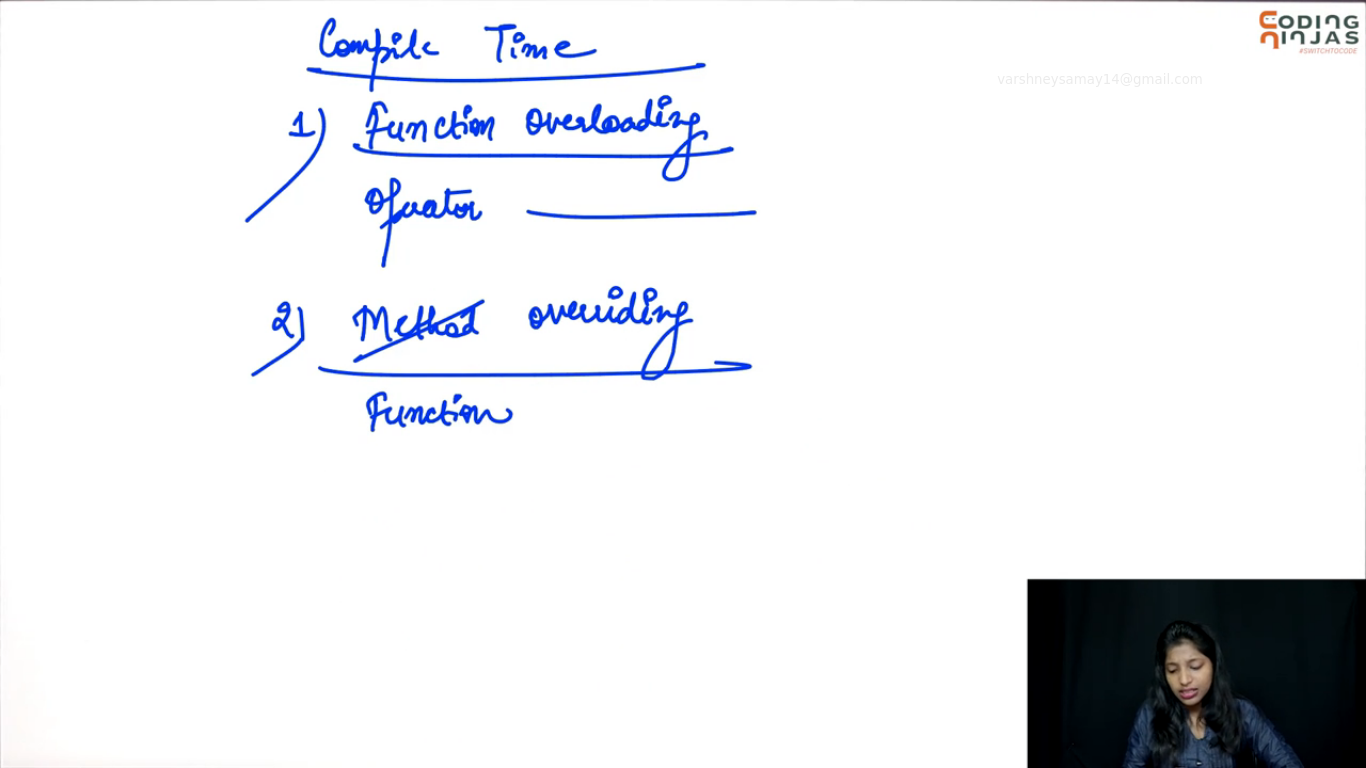 CODING
NINJAS
#SWITCHTOCODE
varshneysamay14@gmail.com
Compile Time
1) Function overloading
Operator
2) Method overriding
Function